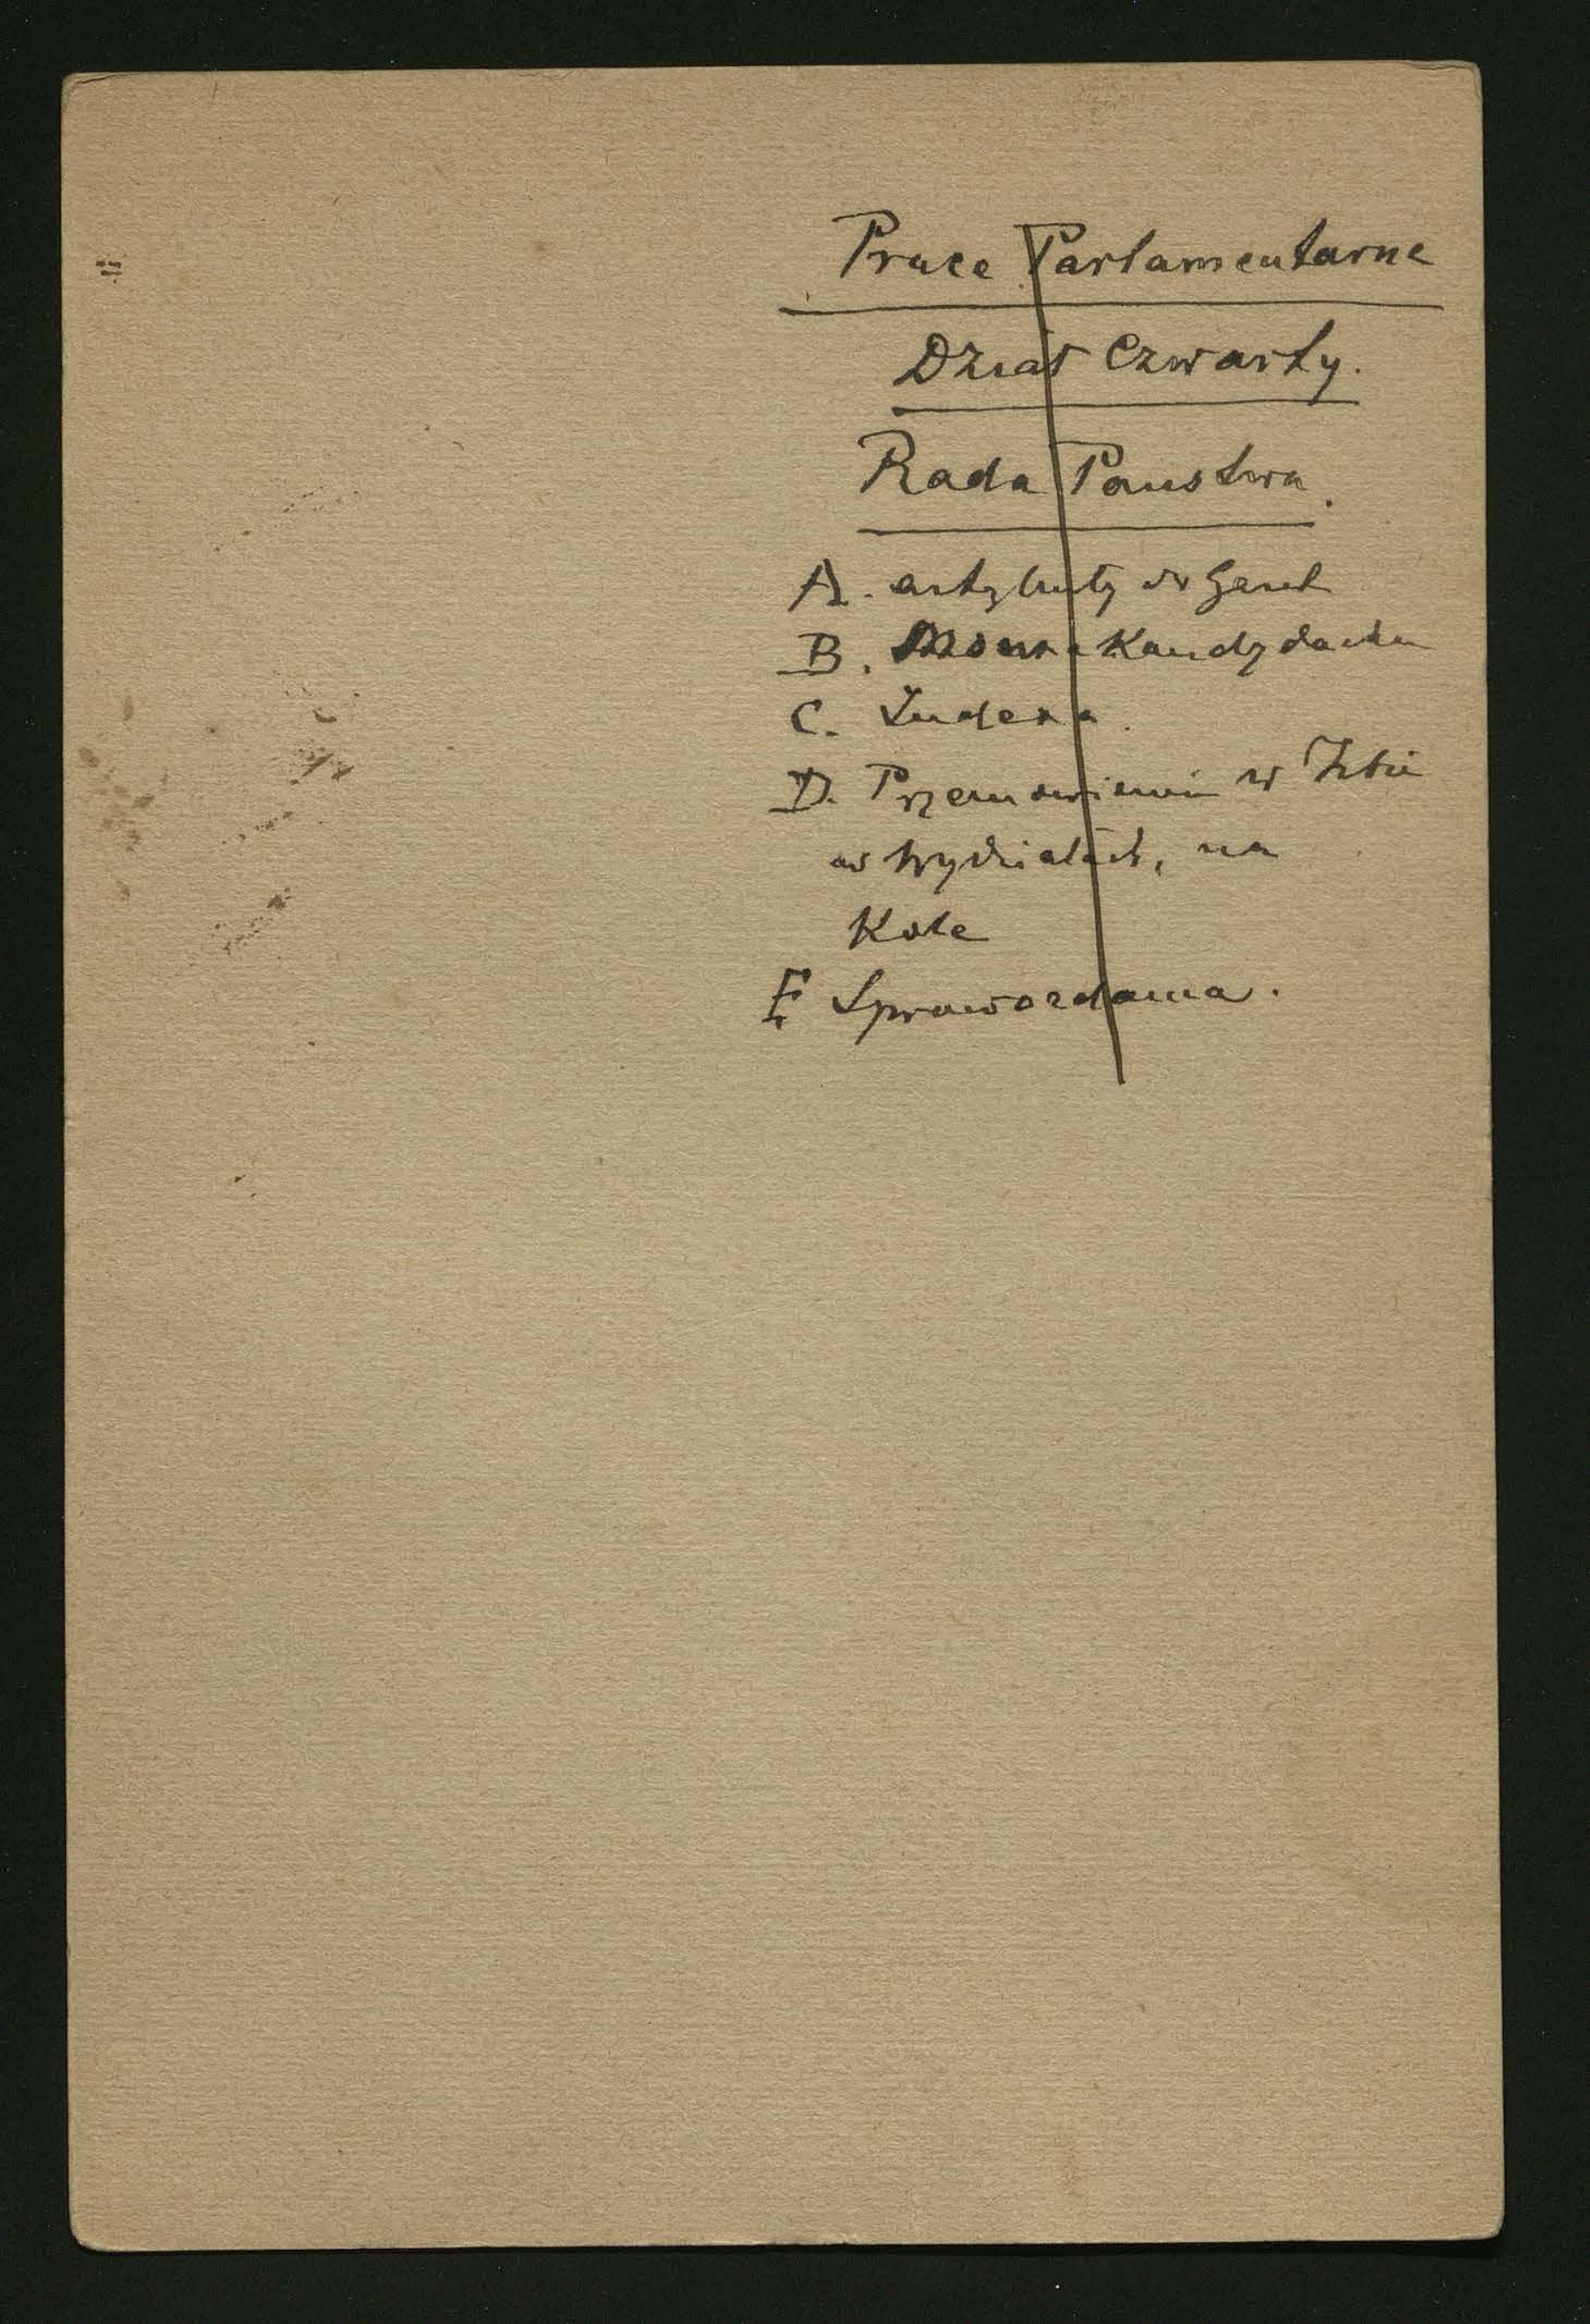 Prace Parlamentarne
Dział Czwarty.
Rada Panstwa.
A. artykuły w
B. Mowa Kandydacka
C.
D. Przemowienia w Izbie
w Wydziałach, na
Kole
E Sprawozdania.